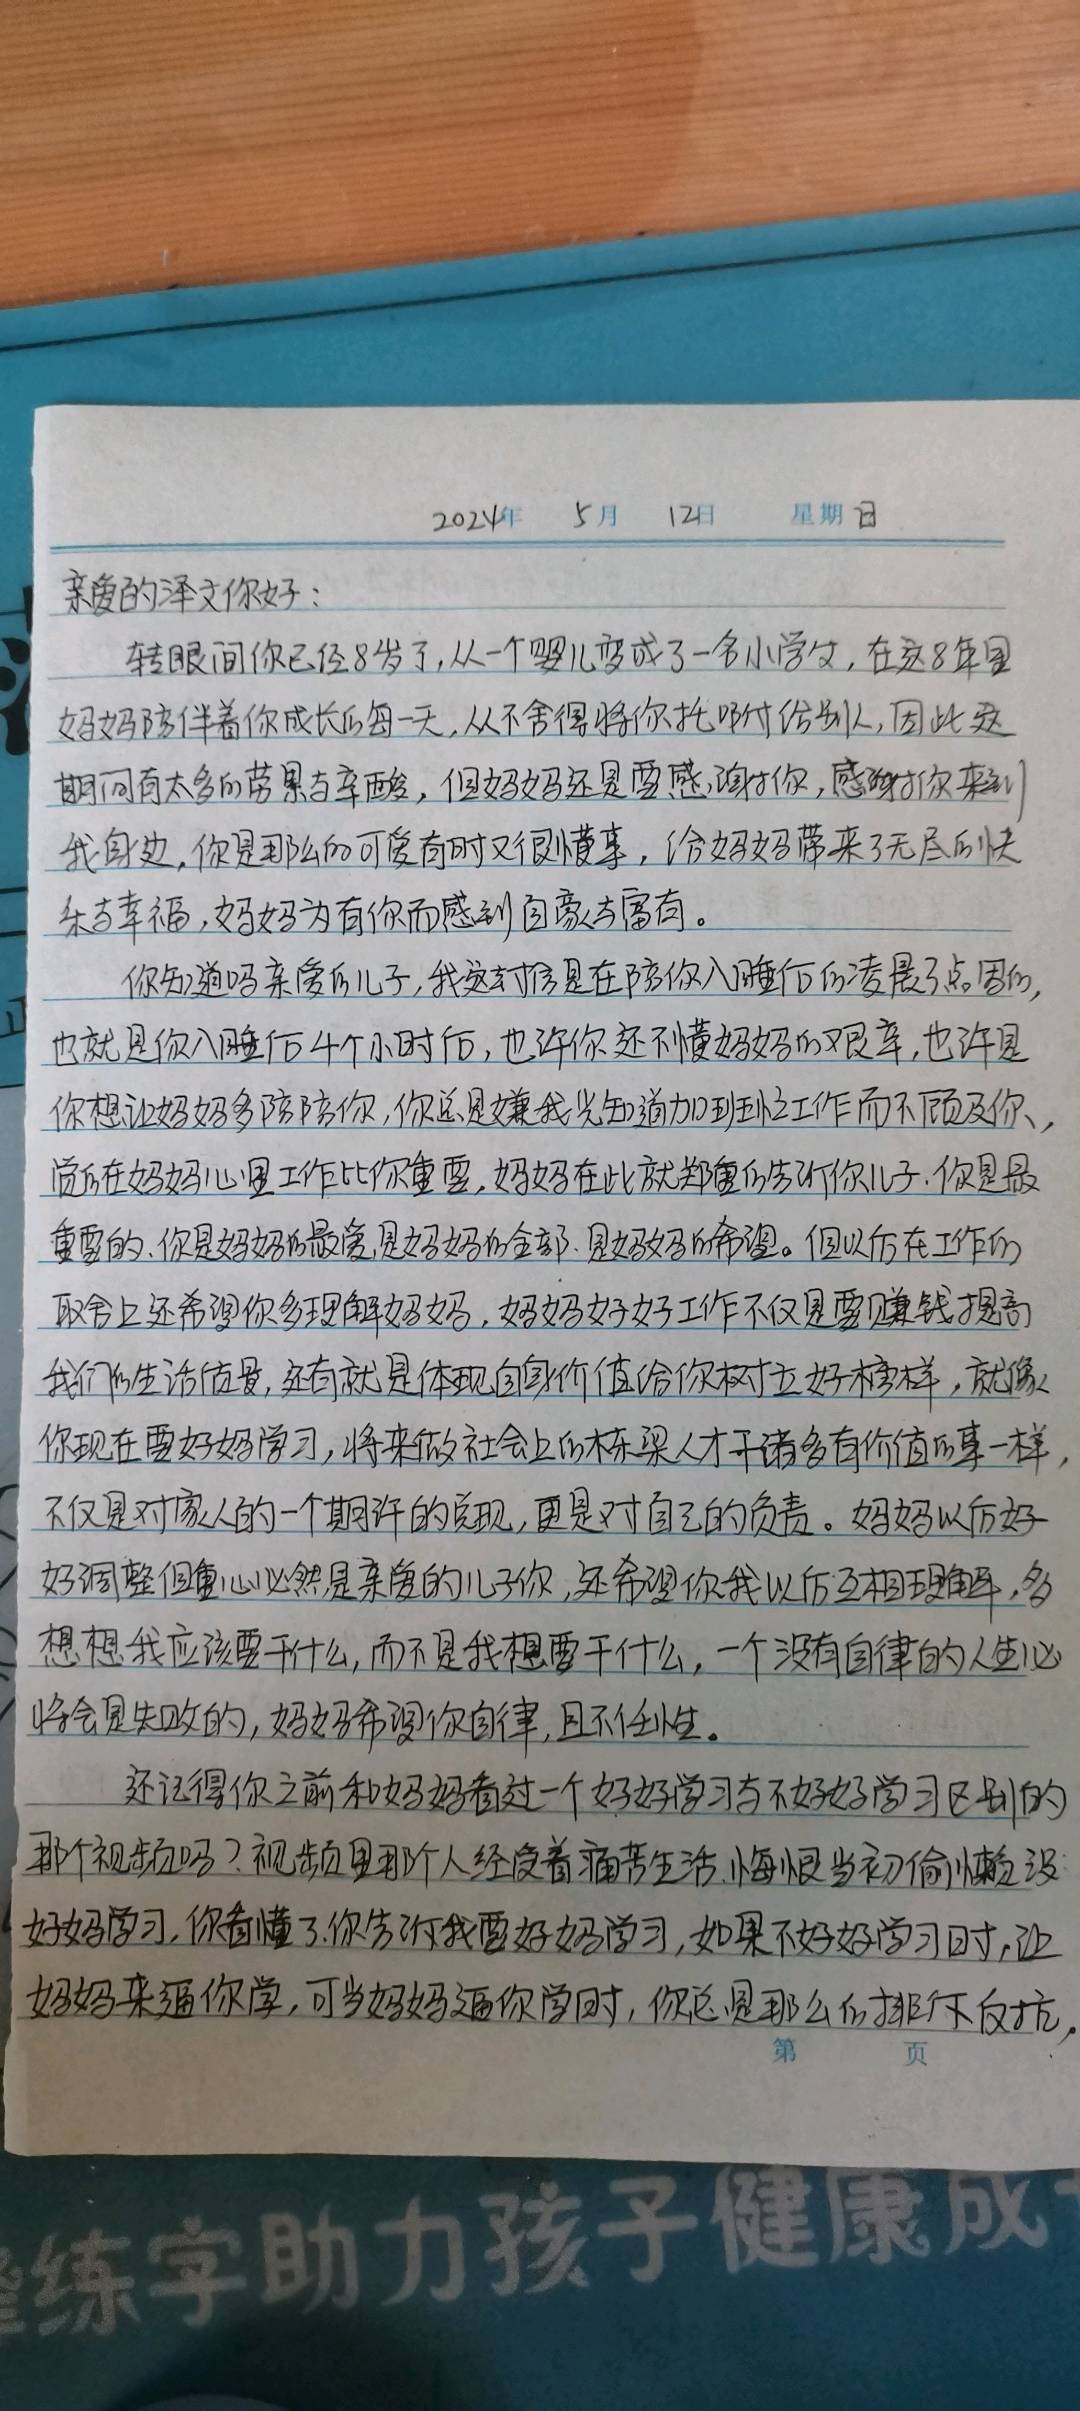 2024年 5月 12日 星期日
亲爱的泽文你好：
转眼间你已经8岁了，从一个婴儿变成了一名小学生，在这8年里
妈妈陪伴着你成长的每一天，从不舍得将你托付给别人，因此这
期间有太多的劳累与辛酸，但妈妈还是要感谢你，感谢你来到
我身边，你是那么的可爱有时又很懂事，给妈妈带来了无尽的快
乐与幸福，妈妈为有你而感到自豪与富有。
你知道吗亲爱的儿子，我这封信是在陪你入睡后的凌晨3点写的，
也就是你入睡后4个小时后，也许你还不懂妈妈的艰辛，也许是
你想让妈妈多陪陪你，你总是嫌我光知道加班忙工作而不顾及你、，
觉的在妈妈心里工作比你重要，妈妈在此就郑重的告诉你儿子．你是最
重要的、你是妈妈的最爱，是妈妈的全部．是妈妈的希望。但以后在工作的
取舍上还希望你多理解妈妈，妈妈好好工作不仅是要赚钱提高
我们的生活质量，还有就是体现自身价值给你树立好榜样，就像
你现在要好好学习，将来做社会上的栋梁人才干诸多有价值的事一样，
不仅是对家人的一个期许的兑现，更是对自己的负责。妈妈以后好
好调整但重心必然是亲爱的儿子你，还希望你我以后互相理解，多
想想我应该要干什么，而不是我想要干什么，一个没有自律的人生必
将会是失败的，妈妈希望你自律，且不任性。
还记得你之前和妈妈看过一个好好学习与不好好学习区别的
那个视频吗？视频里那个人经受着痛苦生活、悔恨当初偷懒没
好好学习，你看懂了．你告诉我要好好学习，如果不好好学习时，让
妈妈来逼你学，可当妈妈逼你学时，你总是那么的排斥反抗，
第 页
练字助力孩子健康成